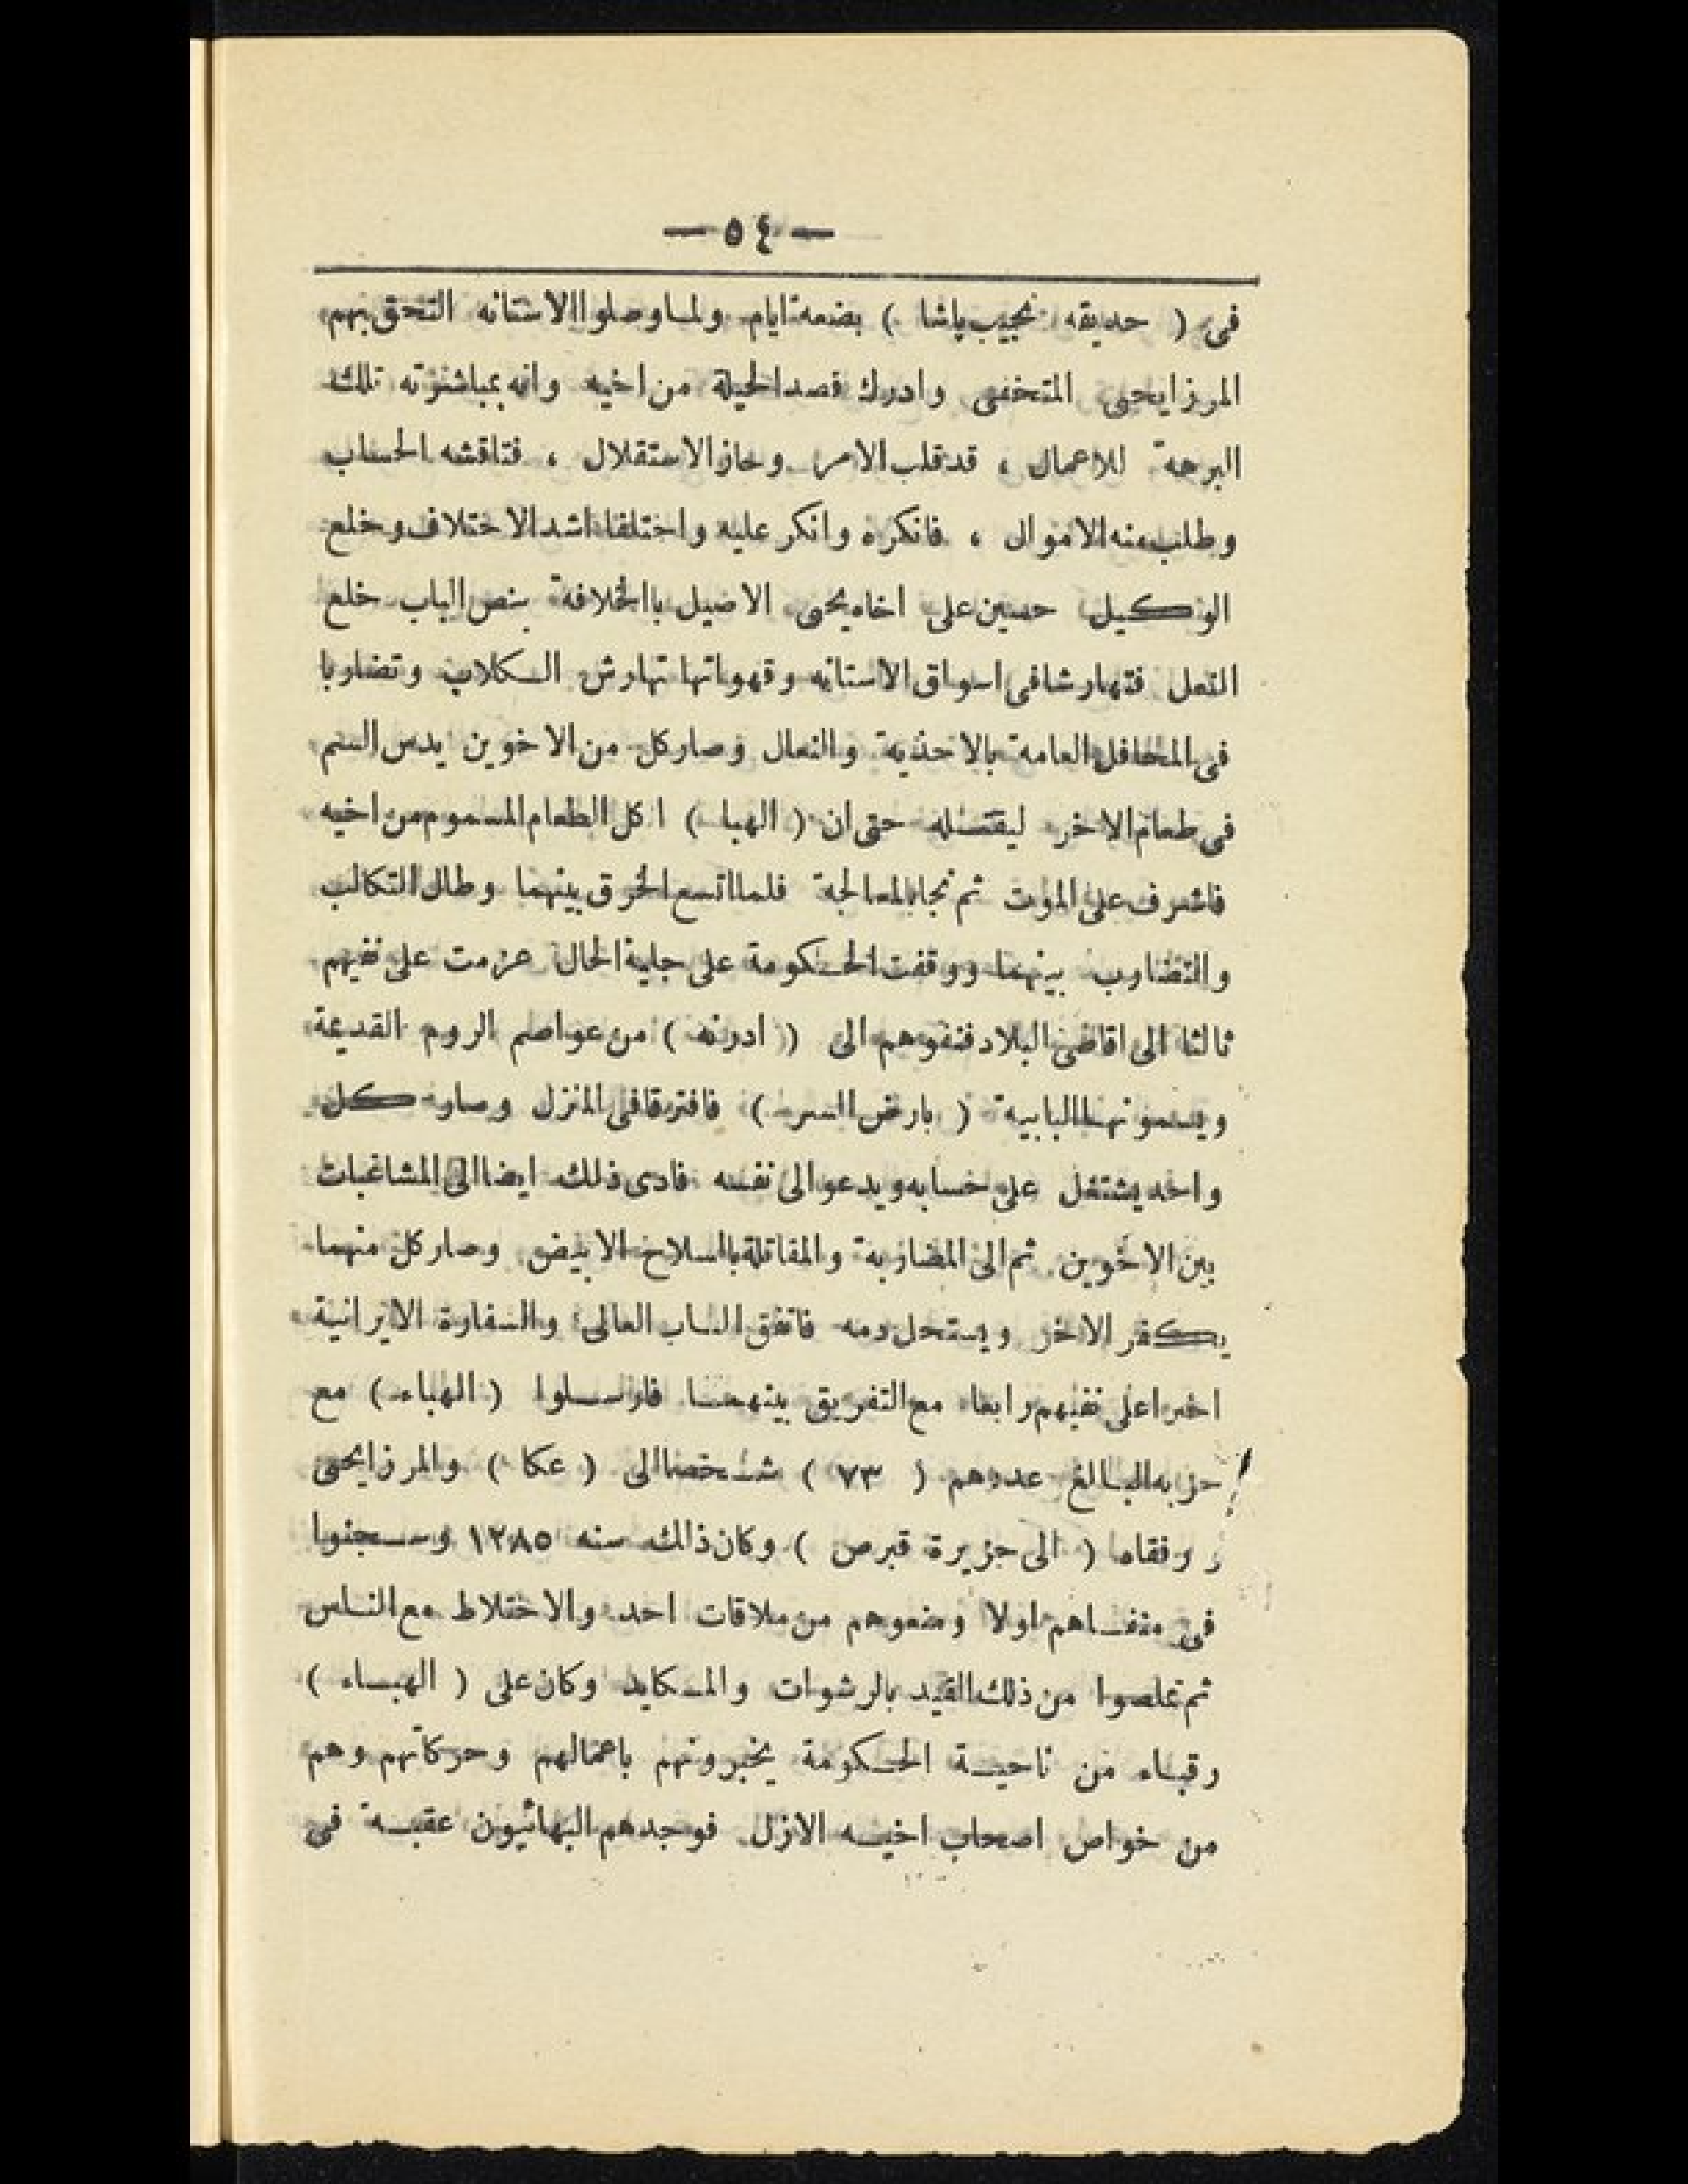 — ٥٤ —
فى ( حديقه نجيب پاشا ) بضعة ايام ولما وصلوا الاستانه التحق بهم
المرزا يحيى المتخفى وادرك قصد الحيلة من اخيه وانه بمباشرته تلك
البرهة للاعمال ، قد قلب الامر وحاز الاستقلال ، فناقشه الحساب
وطلب منه الاموال ، فانكره وانكر عليه واختلفا اشد الاختلاف وخلع
الوكيل حسين على اخاه يحيى الاصيل بالخلافة بنص الباب خلع
النعل فتهارشا فى اسواق الاستانه وقهواتها تهارش الكلاب وتضاربا
فى المحافل العامة بالاحذية والنعال وصار كل من الاخوين يدس السم
فى طعام الاخر ليقتله حتى ان ( الهبا ) اكل الطعام المسموم من اخيه
فاشرف على الموت ثم نجا بالمعالجة فلما اتسع الخرق بينهما وطال التكالب
والتضارب بينهما ووقفت الحكومة على جلية الحال عزمت على نفيهم
ثالثا الى اقاصى البلاد فنفوهم الى ( ادرنه ) من عواصم الروم القديمة
ويسمونها البابية ( بارض السر ) فافترقا فى المنزل وصار كل
واحد يشتغل على حسابه ويدعو الى نفسه فادى ذلك ايضا الى المشاغبات
بين الاخوين ثم الى المضاربة والمقاتلة بالسلاح الابيض وصار كل منهما
يكفر الاخر ويستحل دمه فاتفق الباب العالى والسفارة الايرانية
اخيرا على نفيهم رابعا مع التفريق بينهما فارسلوا ( الهباء ) مع
حزبه البالغ عددهم ( ٧٣ ) شخصا الى ( عكا ) والمرزا يحيى
ورفقاه ( الى جزيرة قبرص ) وكان ذلك سنه ١٢٨٥ وسجنوا
فى منفاهم اولا ومنعوهم من ملاقات احد والاختلاط مع الناس
ثم تملصوا من ذلك القيد بالرشوات والمكايد وكان على ( الهباء )
رقباء من ناحية الحكومة يخبرونهم باعمالهم وحركاتهم وهم
من خواص اصحاب اخيه الازل فوجدهم البهائيون عقبة فى